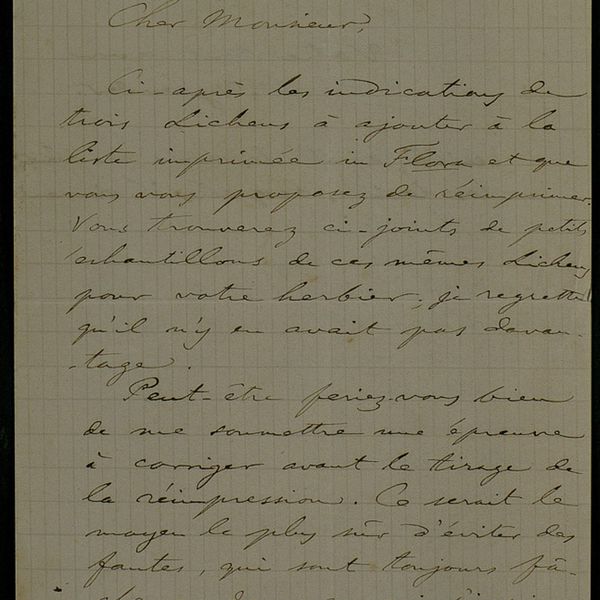 Cher Monsieur,
Ci-après les indications de
trois Lichens à ajouter à la
liste imprimée in Flora et que
vous vous proposez de réimprimer.
Vous trouverez ci-joints de petits
échantillons de ces mêmes Lichens
pour votre herbier; je regrette
qu'il n'y en avait pas davan-
-tage.
Peut-être feriez-vous bien
de me soumettre une épreuve
à corriger avant le tirage de
la réimpression. Ce serait le
moyen le plus sûr d'éviter des
fautes, qui sont toujours fâ-